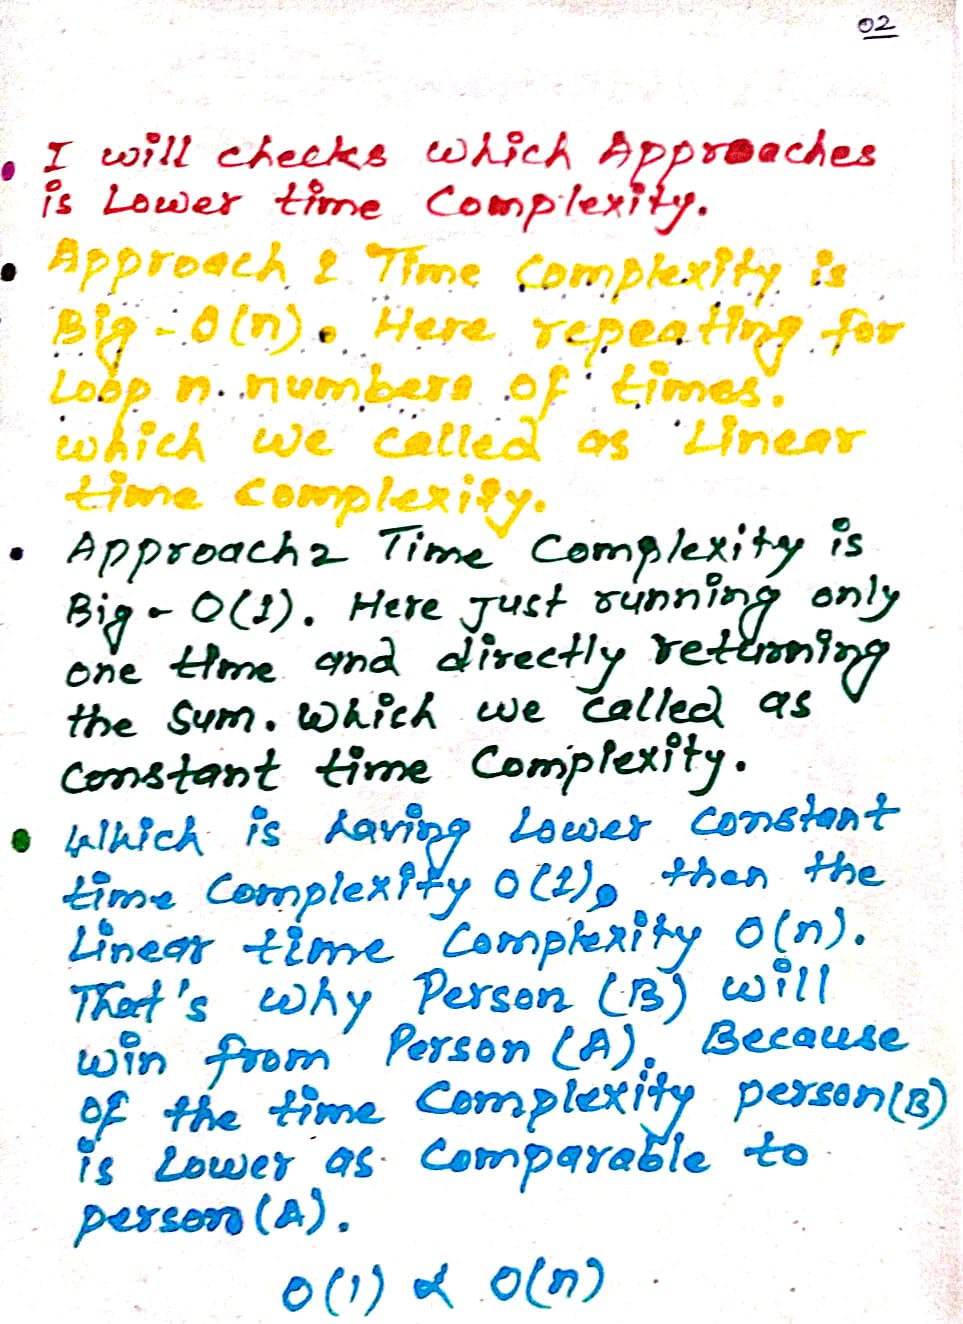 02
I will checks which Approaches
is Lower time Complexity.
Approach 1 Time Complexity is
Big - O(n). Here repeating for
Loop n numbers of times.
which we called as Linear
time complexity.
Approach 2 Time Complexity is
Big - O(1). Here Just running only
one time and directly returning
the Sum. Which we called as
Constant time Complexity.
Which is having Lower constant
time Complexity O(1), then the
Linear time Complexity O(n).
That's why Person (B) will
win from Person (A). Because
of the time Complexity person(B)
is Lower as comparable to
person(A).
O(1) < O(n)